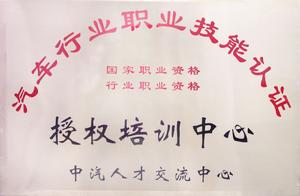 汽车行业职业技能认证
国家职业资格
行业职业资格
授权培训中心
中汽人才交流中心